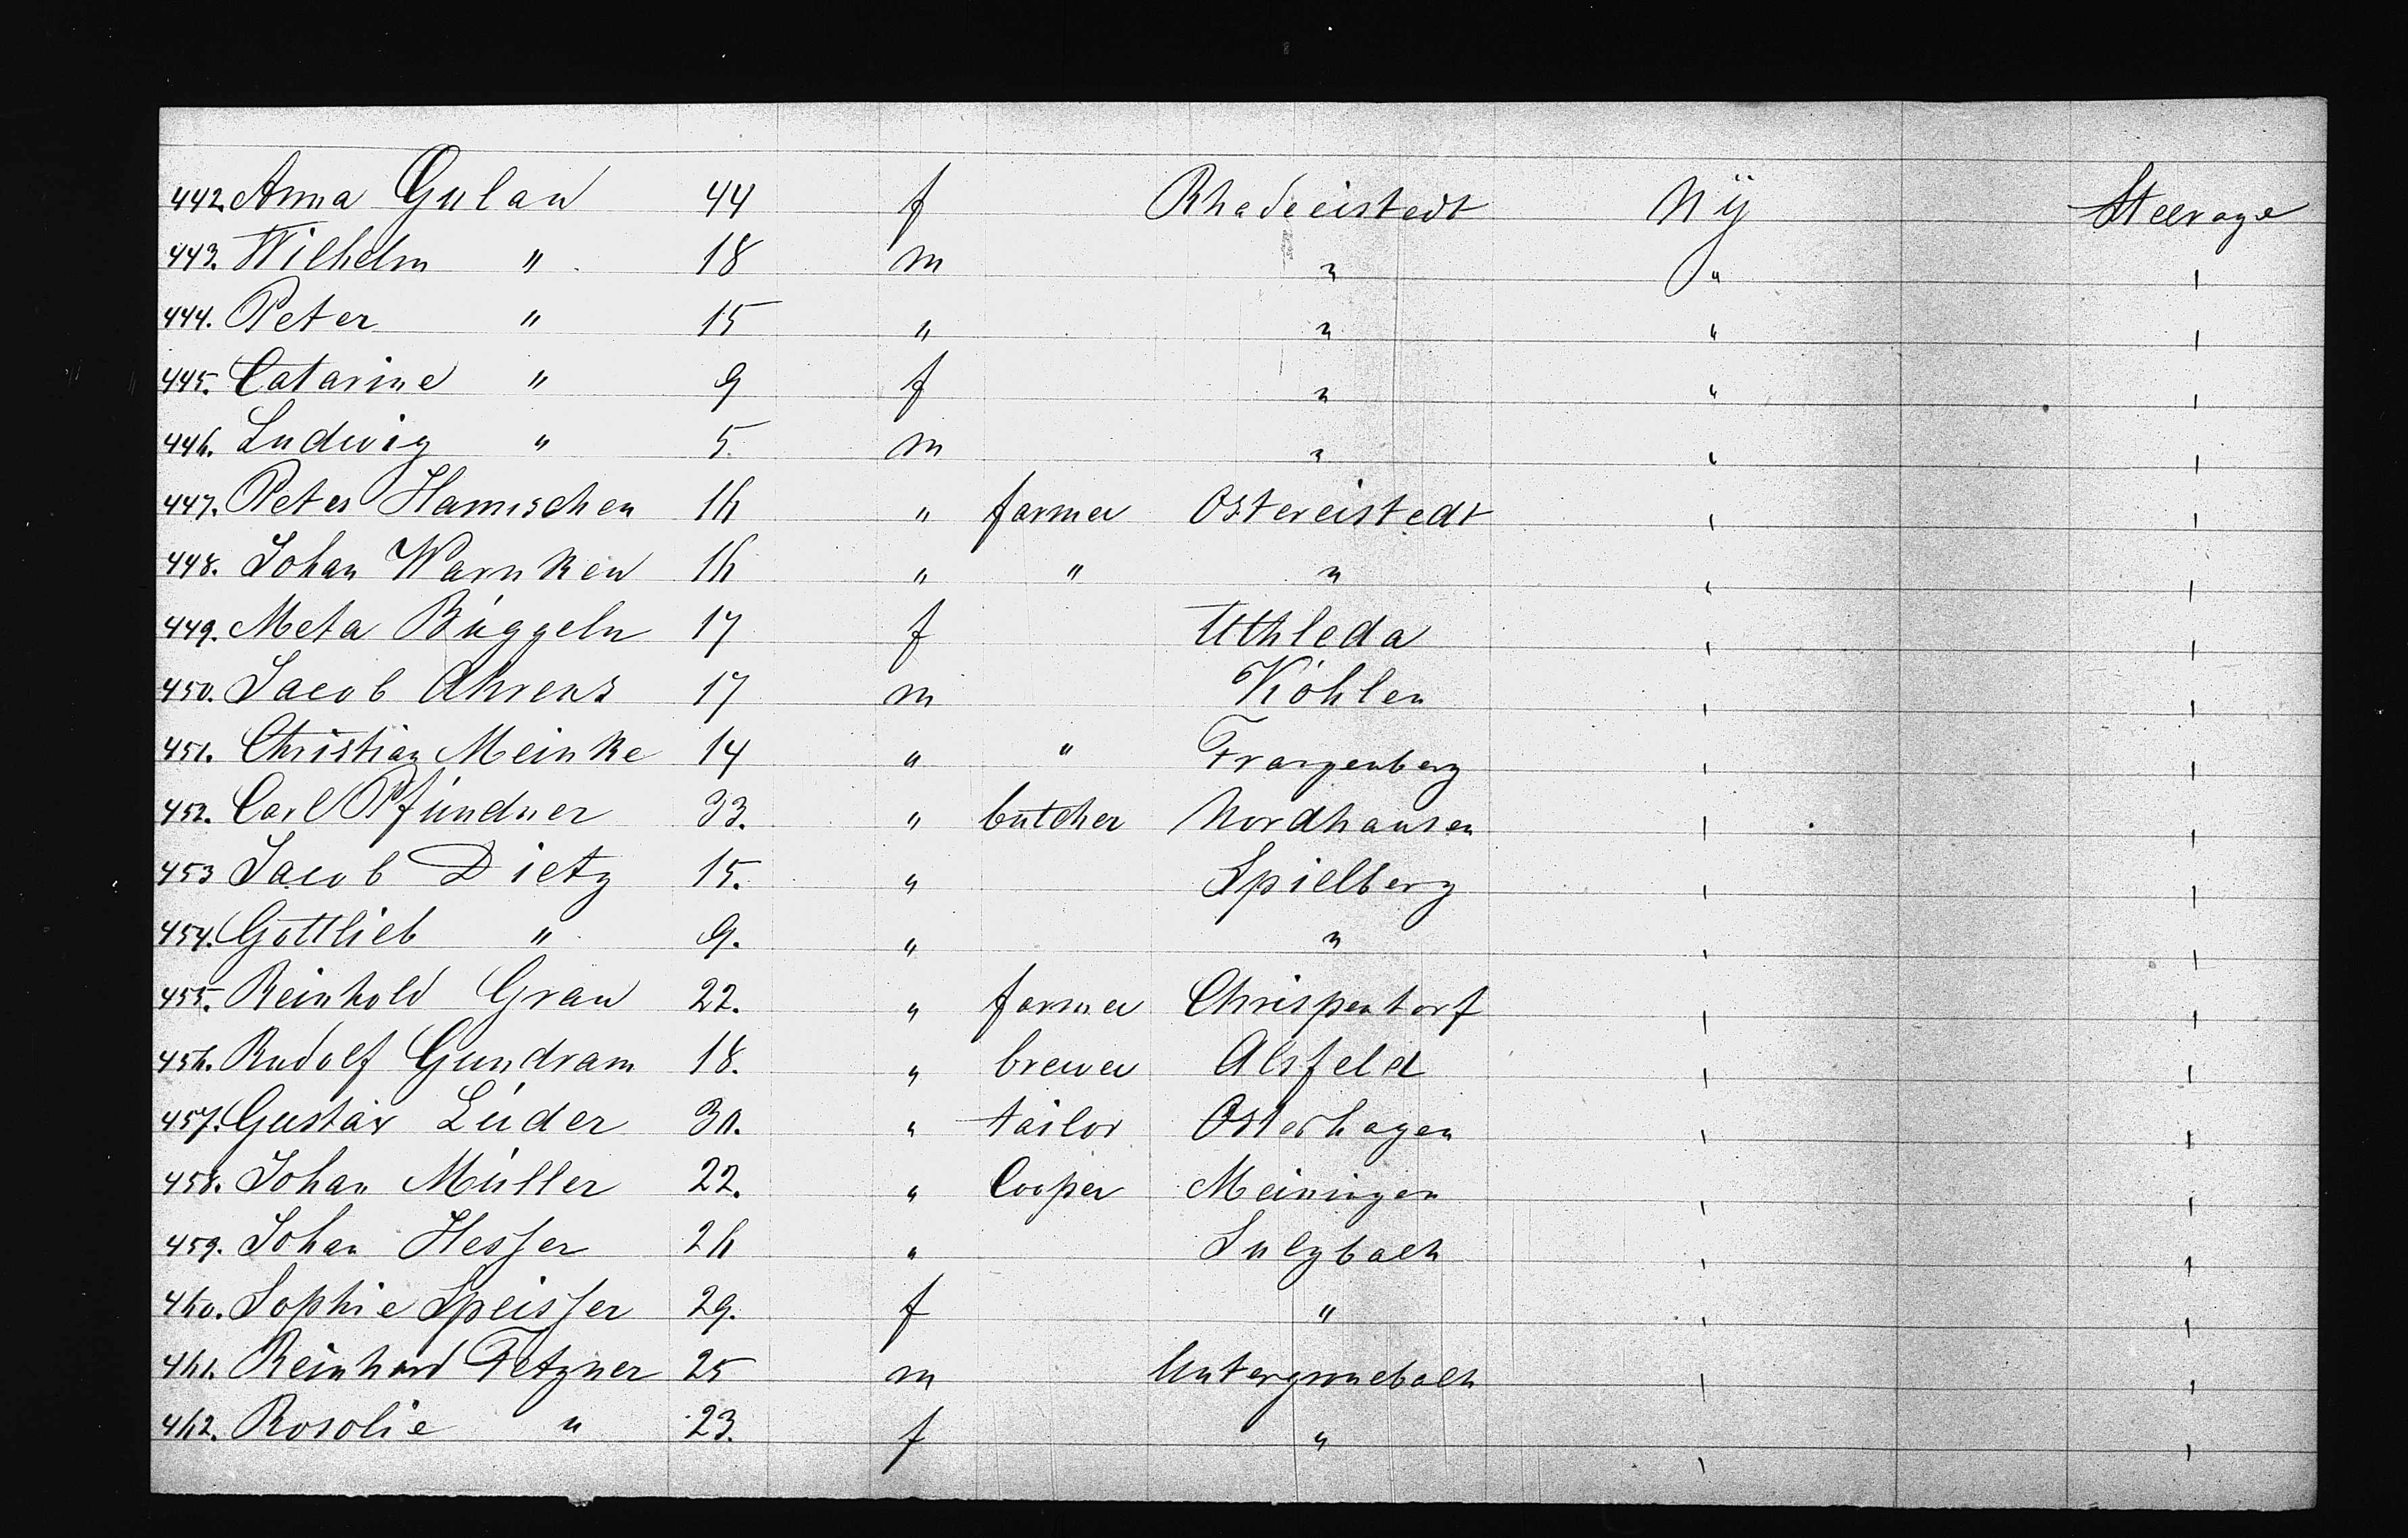 442. Anna Gulau 44 f Rhadeeistedt NY Steerage
443. Wilhelm " 18 m " " "
444. Peter " 15 " " " "
445. Catarine " 9 f " " "
446. Ludwig " 5. m " " "
447. Peter Hamischen 16 " farmer Ostereistedt " "
448. Johan Warnken 16 " " " " "
449. Meta Büggeln 17 f Uthleda " "
450. Jacob Ahrens 17 m Köhlen " "
451. Christian Meinke 14 " " Franzenberg " "
452. Carl Pfündner 33. " butcher Nordhausen " "
453 Jacob Dietz 15. " Spielberg " "
454. Gottlieb " 9. " " " "
455. Reinhold Grau 22. " farmer Chrispendorf " "
456. Rudolf Gundram 18. " brewer Alsfeld " "
457. Gustav Lüder 30. " tailor Osterhagen " "
458. Johan Müller 22. " Cooper Meiningen " "
459. Johan Hesser 26 " Sulzbach " "
460. Sophie Speisser 29. f " " "
461. Reinhard Fetzner 25 m Untergronebach " "
462. Rosolie " 23. f " " "